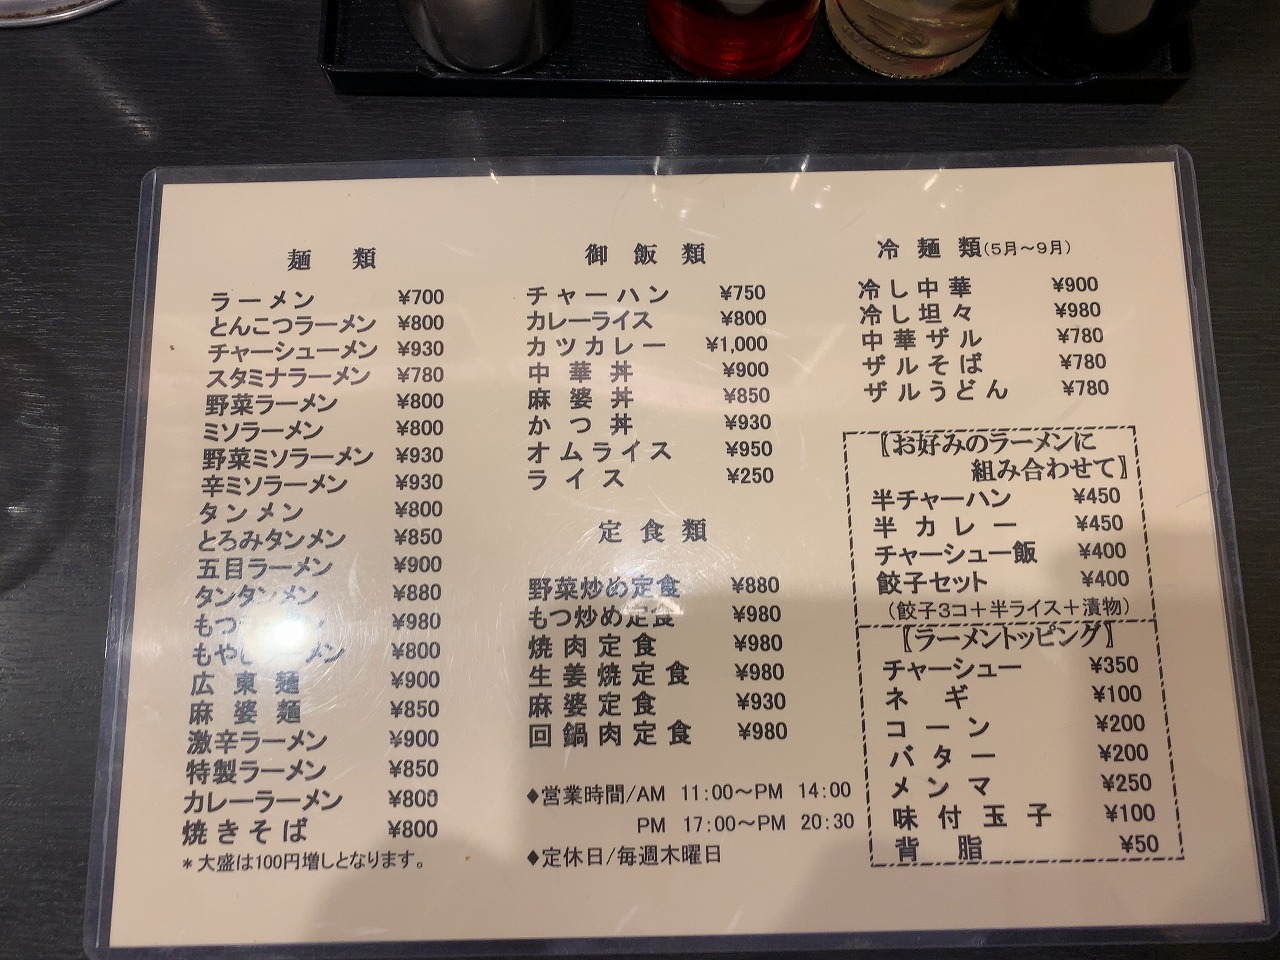 麺類
ラーメン ¥700
とんこつラーメン ¥800
チャーシューメン ¥930
スタミナラーメン ¥780
野菜ラーメン ¥800
ミソラーメン ¥800
野菜ミソラーメン ¥930
辛ミソラーメン ¥930
タンメン ¥800
とろみタンメン ¥850
五目ラーメン ¥900
タンタンメン ¥880
もつ ¥980
もやしラーメン ¥800
広東麺 ¥900
麻婆麺 ¥850
激辛ラーメン ¥900
特製ラーメン ¥850
カレーラーメン ¥800
焼きそば ¥800
*大盛は100円増しとなります。
御飯類
チャーハン ¥750
カレーライス ¥800
カツカレー ¥1,000
中華丼 ¥900
麻婆丼 ¥850
かつ丼 ¥930
オムライス ¥950
ライス ¥250
定食類
野菜炒め定食 ¥880
もつ炒め定食 ¥980
焼肉定食 ¥980
生姜焼定食 ¥980
麻婆定食 ¥930
回鍋肉定食 ¥980
◆営業時間/AM 11:00～PM 14:00
PM 17:00～PM 20:30
◆定休日/毎週木曜日
冷麺類(5月～9月)
冷し中華 ¥900
冷し坦々 ¥980
中華ザル ¥780
ザルそば ¥780
ザルうどん ¥780
〖お好みのラーメンに
組み合わせて〗
半チャーハン ¥450
半カレー ¥450
チャーシュー飯 ¥400
餃子セット ¥400
(餃子3コ＋半ライス＋漬物)
〖ラーメントッピング〗
チャーシュー ¥350
ネギ ¥100
コーン ¥200
バター ¥200
メンマ ¥250
味付玉子 ¥100
背脂 ¥50